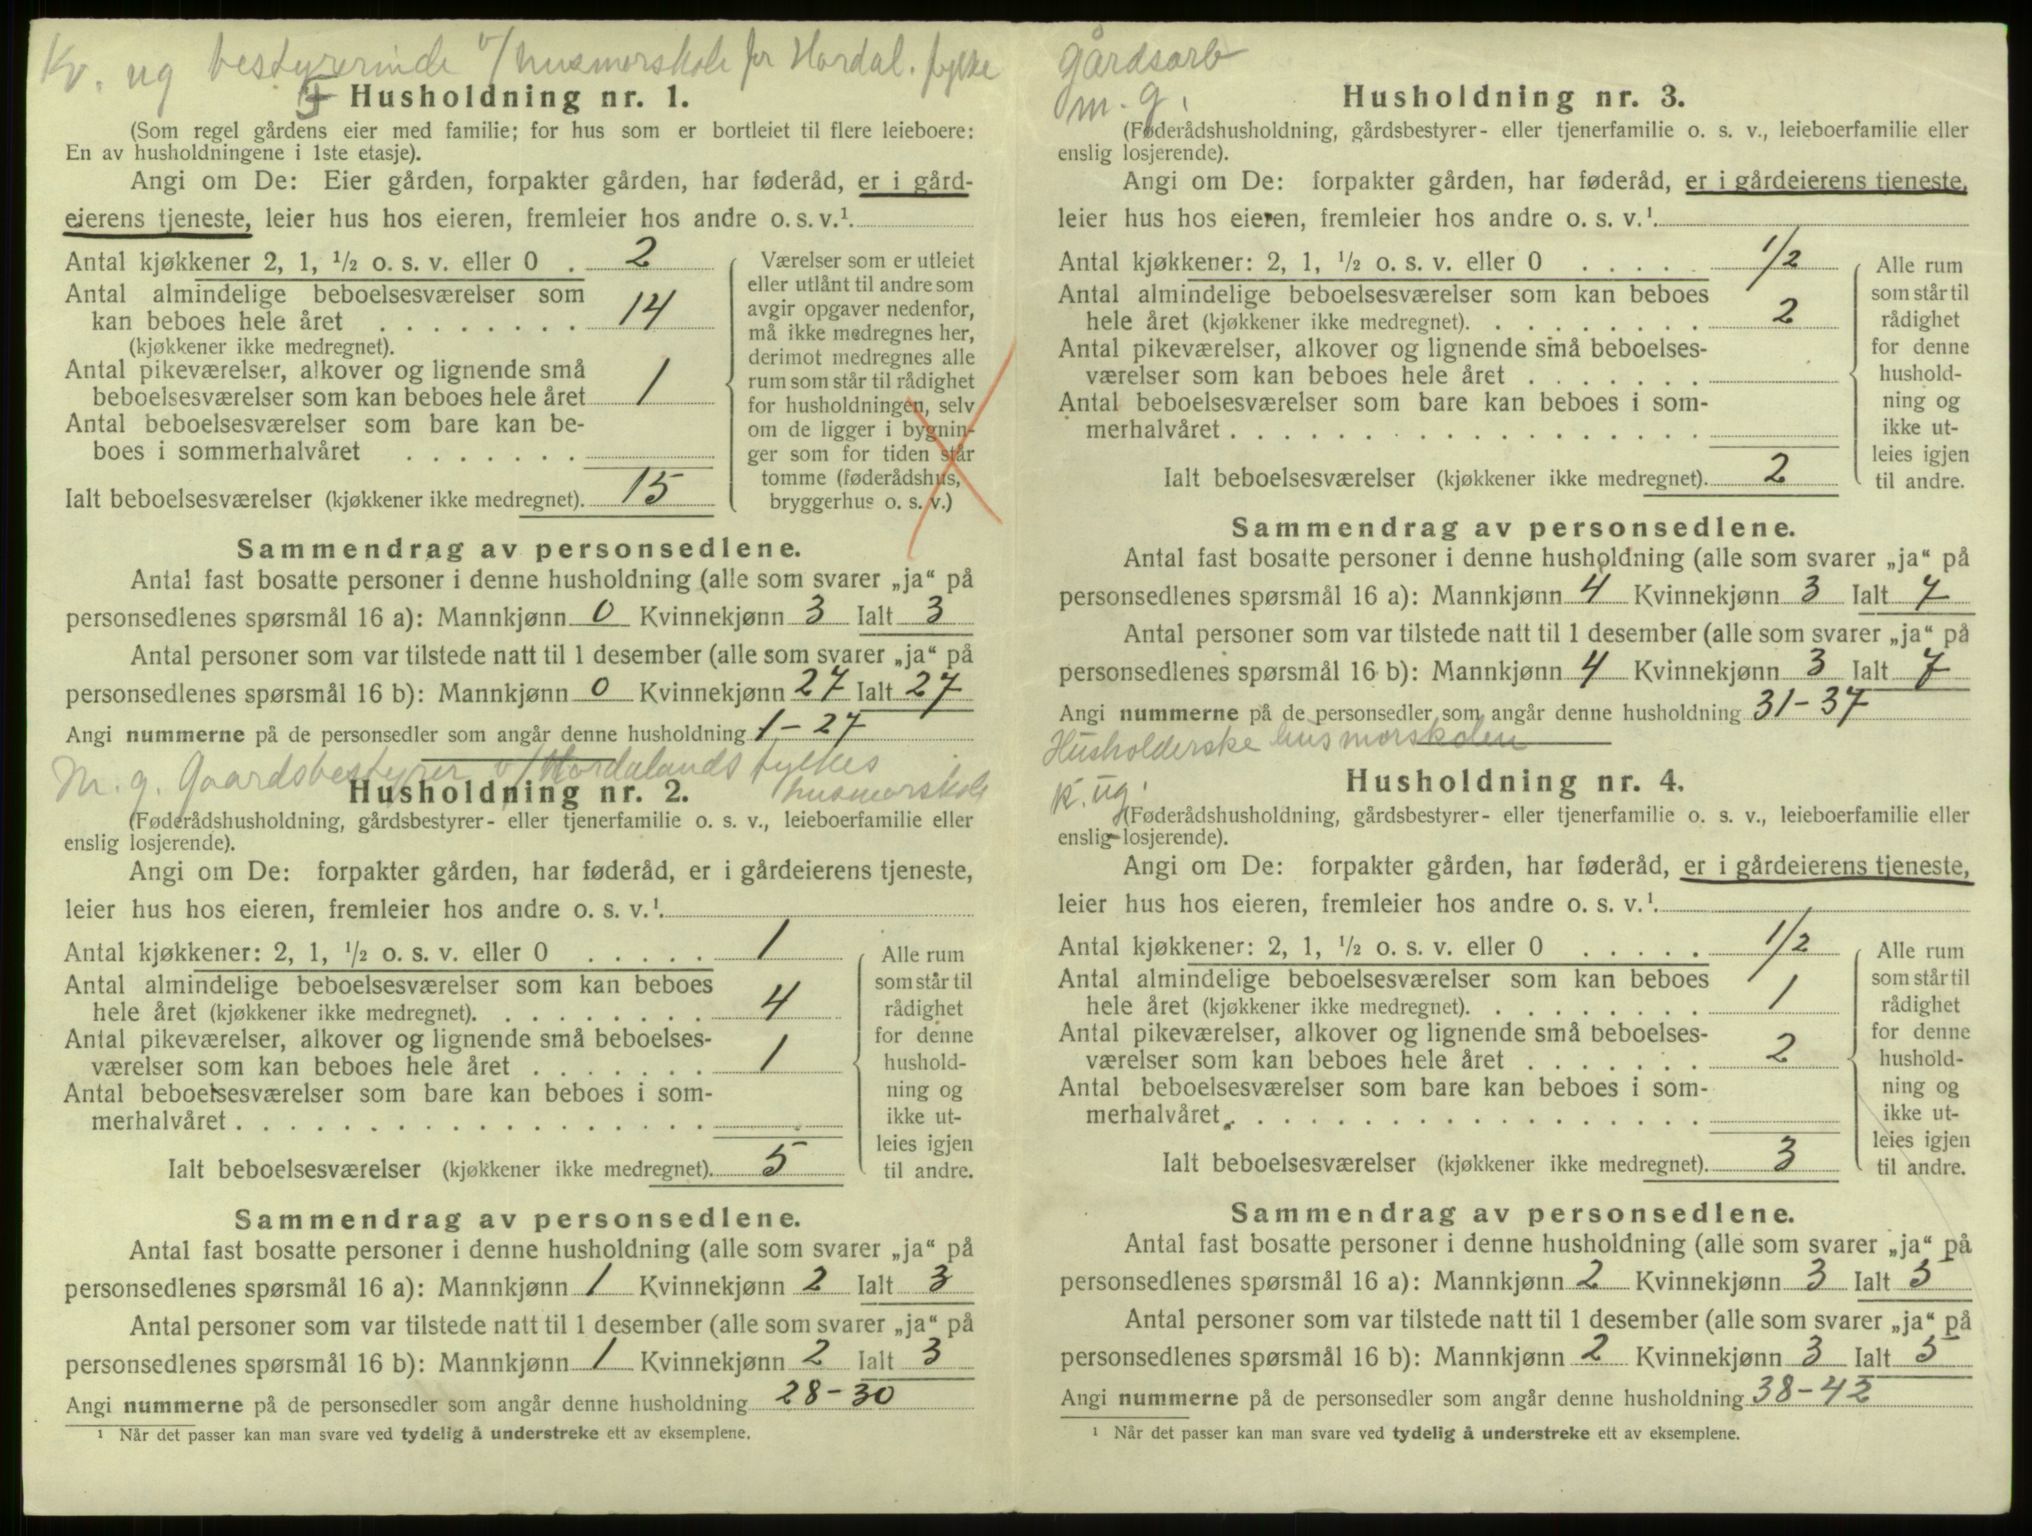 Kv. ug bestyrerinde v/ husmorskole for Hordal. fylke
Husholdning nr. 1.
(Som regel gårdens eier med familie; for hus som er bortleiet til flere leieboere:
En av husholdningene i 1ste etasje).
Angi om De: Eier gården, forpakter gården, har føderåd, er i gård-
eierens tjeneste, leier hus hos eieren, fremleier hos andre o. s. v.¹
Antal kjøkkener 2, 1, ½ o. s. v. eller 0 . 2
Antal almindelige beboelsesværelser som
kan beboes hele året . . . . . . . . 14
(kjøkkener ikke medregnet).
Antal pikeværelser, alkover og lignende små
beboelsesværelser som kan beboes hele året 1
Antal beboelsesværelser som bare kan be-
boes i sommerhalvåret . . . . . . .
Ialt beboelsesværelser (kjøkkener ikke medregnet). 15
Værelser som er utleiet
eller utlånt til andre som
avgir opgaver nedenfor,
må ikke medregnes her,
derimot medregnes alle
rum som står til rådighet
for husholdningen, selv
om de ligger i bygnin-
ger som for tiden står
tomme (føderådshus,
bryggerhus o. s. v.)
Sammendrag av personsedlene.
Antal fast bosatte personer i denne husholdning (alle som svarer „ja“ på
personsedlenes spørsmål 16 a): Mannkjønn 0 Kvinnekjønn 3 Ialt 3
Antal personer som var tilstede natt til 1 desember (alle som svarer „ja“ på
personsedlenes spørsmål 16 b): Mannkjønn 0 Kvinnekjønn 27 Ialt 27
Angi nummerne på de personsedler som angår denne husholdning 1-27
M. g. Gaardsbestyrer v/ Hordalands fylkes
husmorskole
Husholdning nr. 2.
(Føderådshusholdning, gårdsbestyrer- eller tjenerfamilie o. s. v., leieboerfamilie eller
enslig losjerende).
Angi om De: forpakter gården, har føderåd, er i gårdeierens tjeneste,
leier hus hos eieren, fremleier hos andre o. s. v.¹
Antal kjøkkener: 2, 1, ½ o. s. v. eller 0 . . . . . 1
Antal almindelige beboelsesværelser som kan beboes
hele året (kjøkkener ikke medregnet). . . . . . . . . 4
Antal pikeværelser, alkover og lignende små beboelses-
værelser som kan beboes hele året . . . . . . . 1
Antal beboelsesværelser som bare kan beboes i som-
merhalvåret . . . . . . . . . . . . . . . . . .
Ialt beboelsesværelser (kjøkkener ikke medregnet). 5
Alle rum
som står til
rådighet
for denne
hushold-
ning og
ikke ut-
leies igjen
til andre.
Sammendrag av personsedlene.
Antal fast bosatte personer i denne husholdning (alle som svarer „ja“ på
personsedlenes spørsmål 16 a): Mannkjønn 1 Kvinnekjønn 2 Ialt 3
Antal personer som var tilstede natt til 1 desember (alle som svarer „ja“ på
personsedlenes spørsmål 16 b): Mannkjønn 1 Kvinnekjønn 2 Ialt 3
Angi nummerne på de personsedler som angår denne husholdning 28-30
¹ Når det passer kan man svare ved tydelig å understreke ett av eksemplene.
gårdsarb
m. g.
Husholdning nr. 3.
(Føderådshusholdning, gårdsbestyrer- eller tjenerfamilie o. s. v., leieboerfamilie eller
enslig losjerende).
Angi om De: forpakter gården, har føderåd, er i gårdeierens tjeneste,
leier hus hos eieren, fremleier hos andre o. s. v.¹
Antal kjøkkener: 2, 1, ½ o. s. v. eller 0 . . . . . 1/2
Antal almindelige beboelsesværelser som kan beboes
hele året (kjøkkener ikke medregnet). . . . . . . . . 2
Antal pikeværelser, alkover og lignende små beboelses-
værelser som kan beboes hele året . . . . . . .
Antal beboelsesværelser som bare kan beboes i som-
merhalvåret . . . . . . . . . . . . . . . . . .
Ialt beboelsesværelser (kjøkkener ikke medregnet). 2
Alle rum
som står til
rådighet
for denne
hushold-
ning og
ikke ut-
leies igjen
til andre.
Sammendrag av personsedlene.
Antal fast bosatte personer i denne husholdning (alle som svarer „ja“ på
personsedlenes spørsmål 16 a): Mannkjønn 4 Kvinnekjønn 3 Ialt 7
Antal personer som var tilstede natt til 1 desember (alle som svarer „ja“ på
personsedlenes spørsmål 16 b): Mannkjønn 4 Kvinnekjønn 3 Ialt 7
Angi nummerne på de personsedler som angår denne husholdning 31-37
Husholderske husmorskolen
k. ug.
Husholdning nr. 4.
(Føderådshusholdning, gårdsbestyrer- eller tjenerfamilie o. s. v., leieboerfamilie eller
enslig losjerende).
Angi om De: forpakter gården, har føderåd, er i gårdeierens tjeneste,
leier hus hos eieren, fremleier hos andre o. s. v.¹
Antal kjøkkener: 2, 1, ½ o. s. v. eller 0 . . . . . 1/2
Antal almindelige beboelsesværelser som kan beboes
hele året (kjøkkener ikke medregnet). . . . . . . . . 1
Antal pikeværelser, alkover og lignende små beboelses-
værelser som kan beboes hele året . . . . . . . 2
Antal beboelsesværelser som bare kan beboes i som-
merhalvåret . . . . . . . . . . . . . . . . . .
Ialt beboelsesværelser (kjøkkener ikke medregnet). 3
Alle rum
som står til
rådighet
for denne
hushold-
ning og
ikke ut-
leies igjen
til andre.
Sammendrag av personsedlene.
Antal fast bosatte personer i denne husholdning (alle som svarer „ja“ på
personsedlenes spørsmål 16 a): Mannkjønn 2 Kvinnekjønn 3 Ialt 5
Antal personer som var tilstede natt til 1 desember (alle som svarer „ja“ på
personsedlenes spørsmål 16 b): Mannkjønn 2 Kvinnekjønn 3 Ialt 5
Angi nummerne på de personsedler som angår denne husholdning 38-42
¹ Når det passer kan man svare ved tydelig å understreke ett av eksemplene.